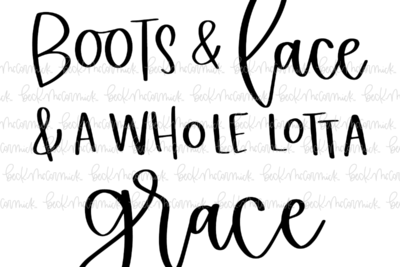 BOOTS & lace
& A WHOLE LOTTA
grace